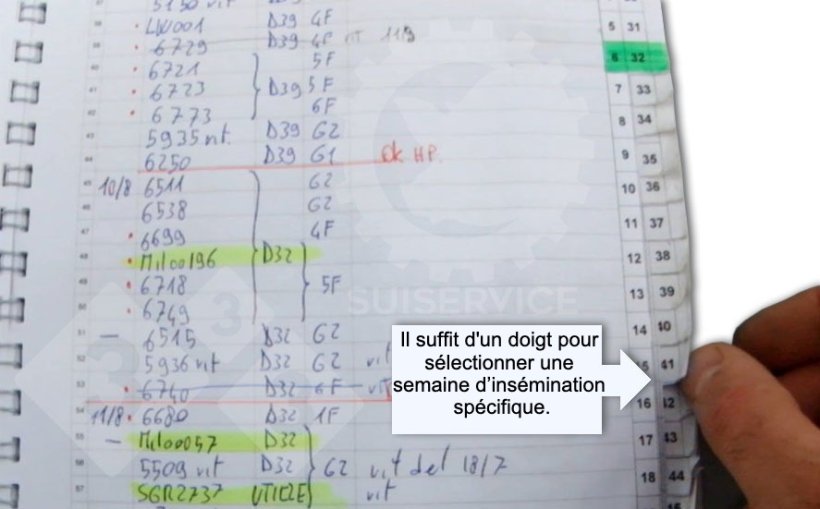 5150 vit D39 4F
LW001 D39 4F
6729 D39 4F vit 11/9
6721 5F
6723 D39 5F
6773 6F
5935 vit. D39 G2
6250 D39 G1 Ok HP.
10/8 6511 G2
6538 G2
6699 4F
Miloo196 D32
6718 5F
6749
6515 D32 G2
5936 vit D32 G2 vit
6740 D32 6F
11/8 6680 D32 1F
Miloo057 D32
5509 vit D32 G2 vit del 18/7
SGR2737 vit
5 31
6 32
7 33
8 34
9 35
10 36
11 37
12 38
13 39
14 40
41
16 42
17 43
18 44
SUISERVICE
333
Il suffit d'un doigt pour
sélectionner une
semaine d'insémination
spécifique.